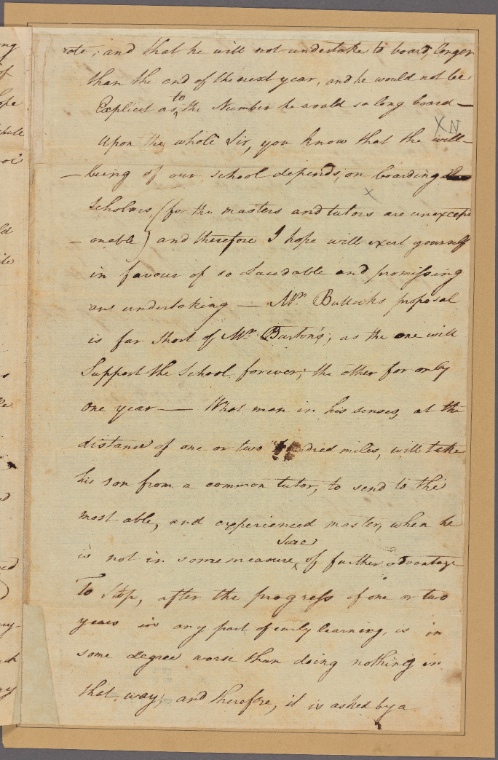 rate, and that he will not undertake to board, longer
than the end of the next year, and he would not be
Explicit as to the Number he would so long board —
XN
Upon the whole Sir, you know that the well-
- being of our school depends, on boarding the
Scholars (for the masters and tutors are unexcep
- onable) and therefore I hope will exert yourself
in favour of so Laudable and promissing
an undertaking — Mr. Bullocks proposal
is far short of Mr. Barton's, as the one will
Support the School forever, the other for only
one year — What man in his senses, at the
distance of one or two hundred miles, will take
his son from a common tutor, to send to the
most able, and experienced master, when he
is not in some measure, sure of further advantage
To Stop, after the progress of one or two
years in any part of early learning, is in
some degree worse than doing nothing in
that way, and therefore, it is asked by a